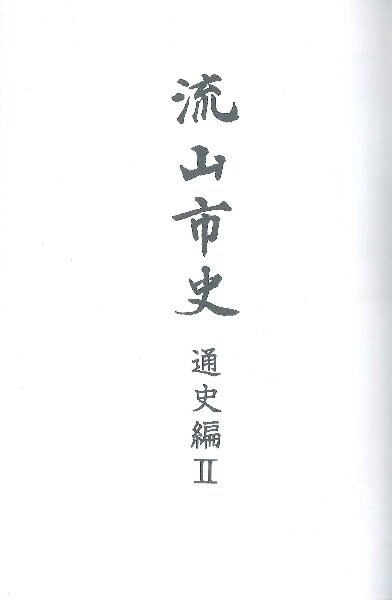 流山市史
通史編Ⅱ